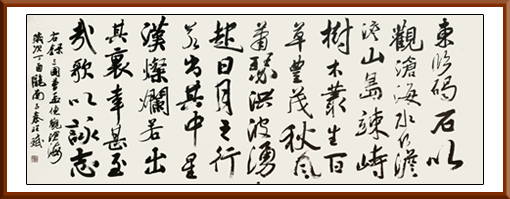 東臨碣石以
觀滄海水何澹
澹山島竦峙
樹木叢生百
草豐茂秋風
蕭瑟洪波湧
起日月之行
若出其中星
漢燦爛若出
其裏幸甚至
哉歌以詠志
右錄三國曹孟德觀滄海
歲次丁酉隴南